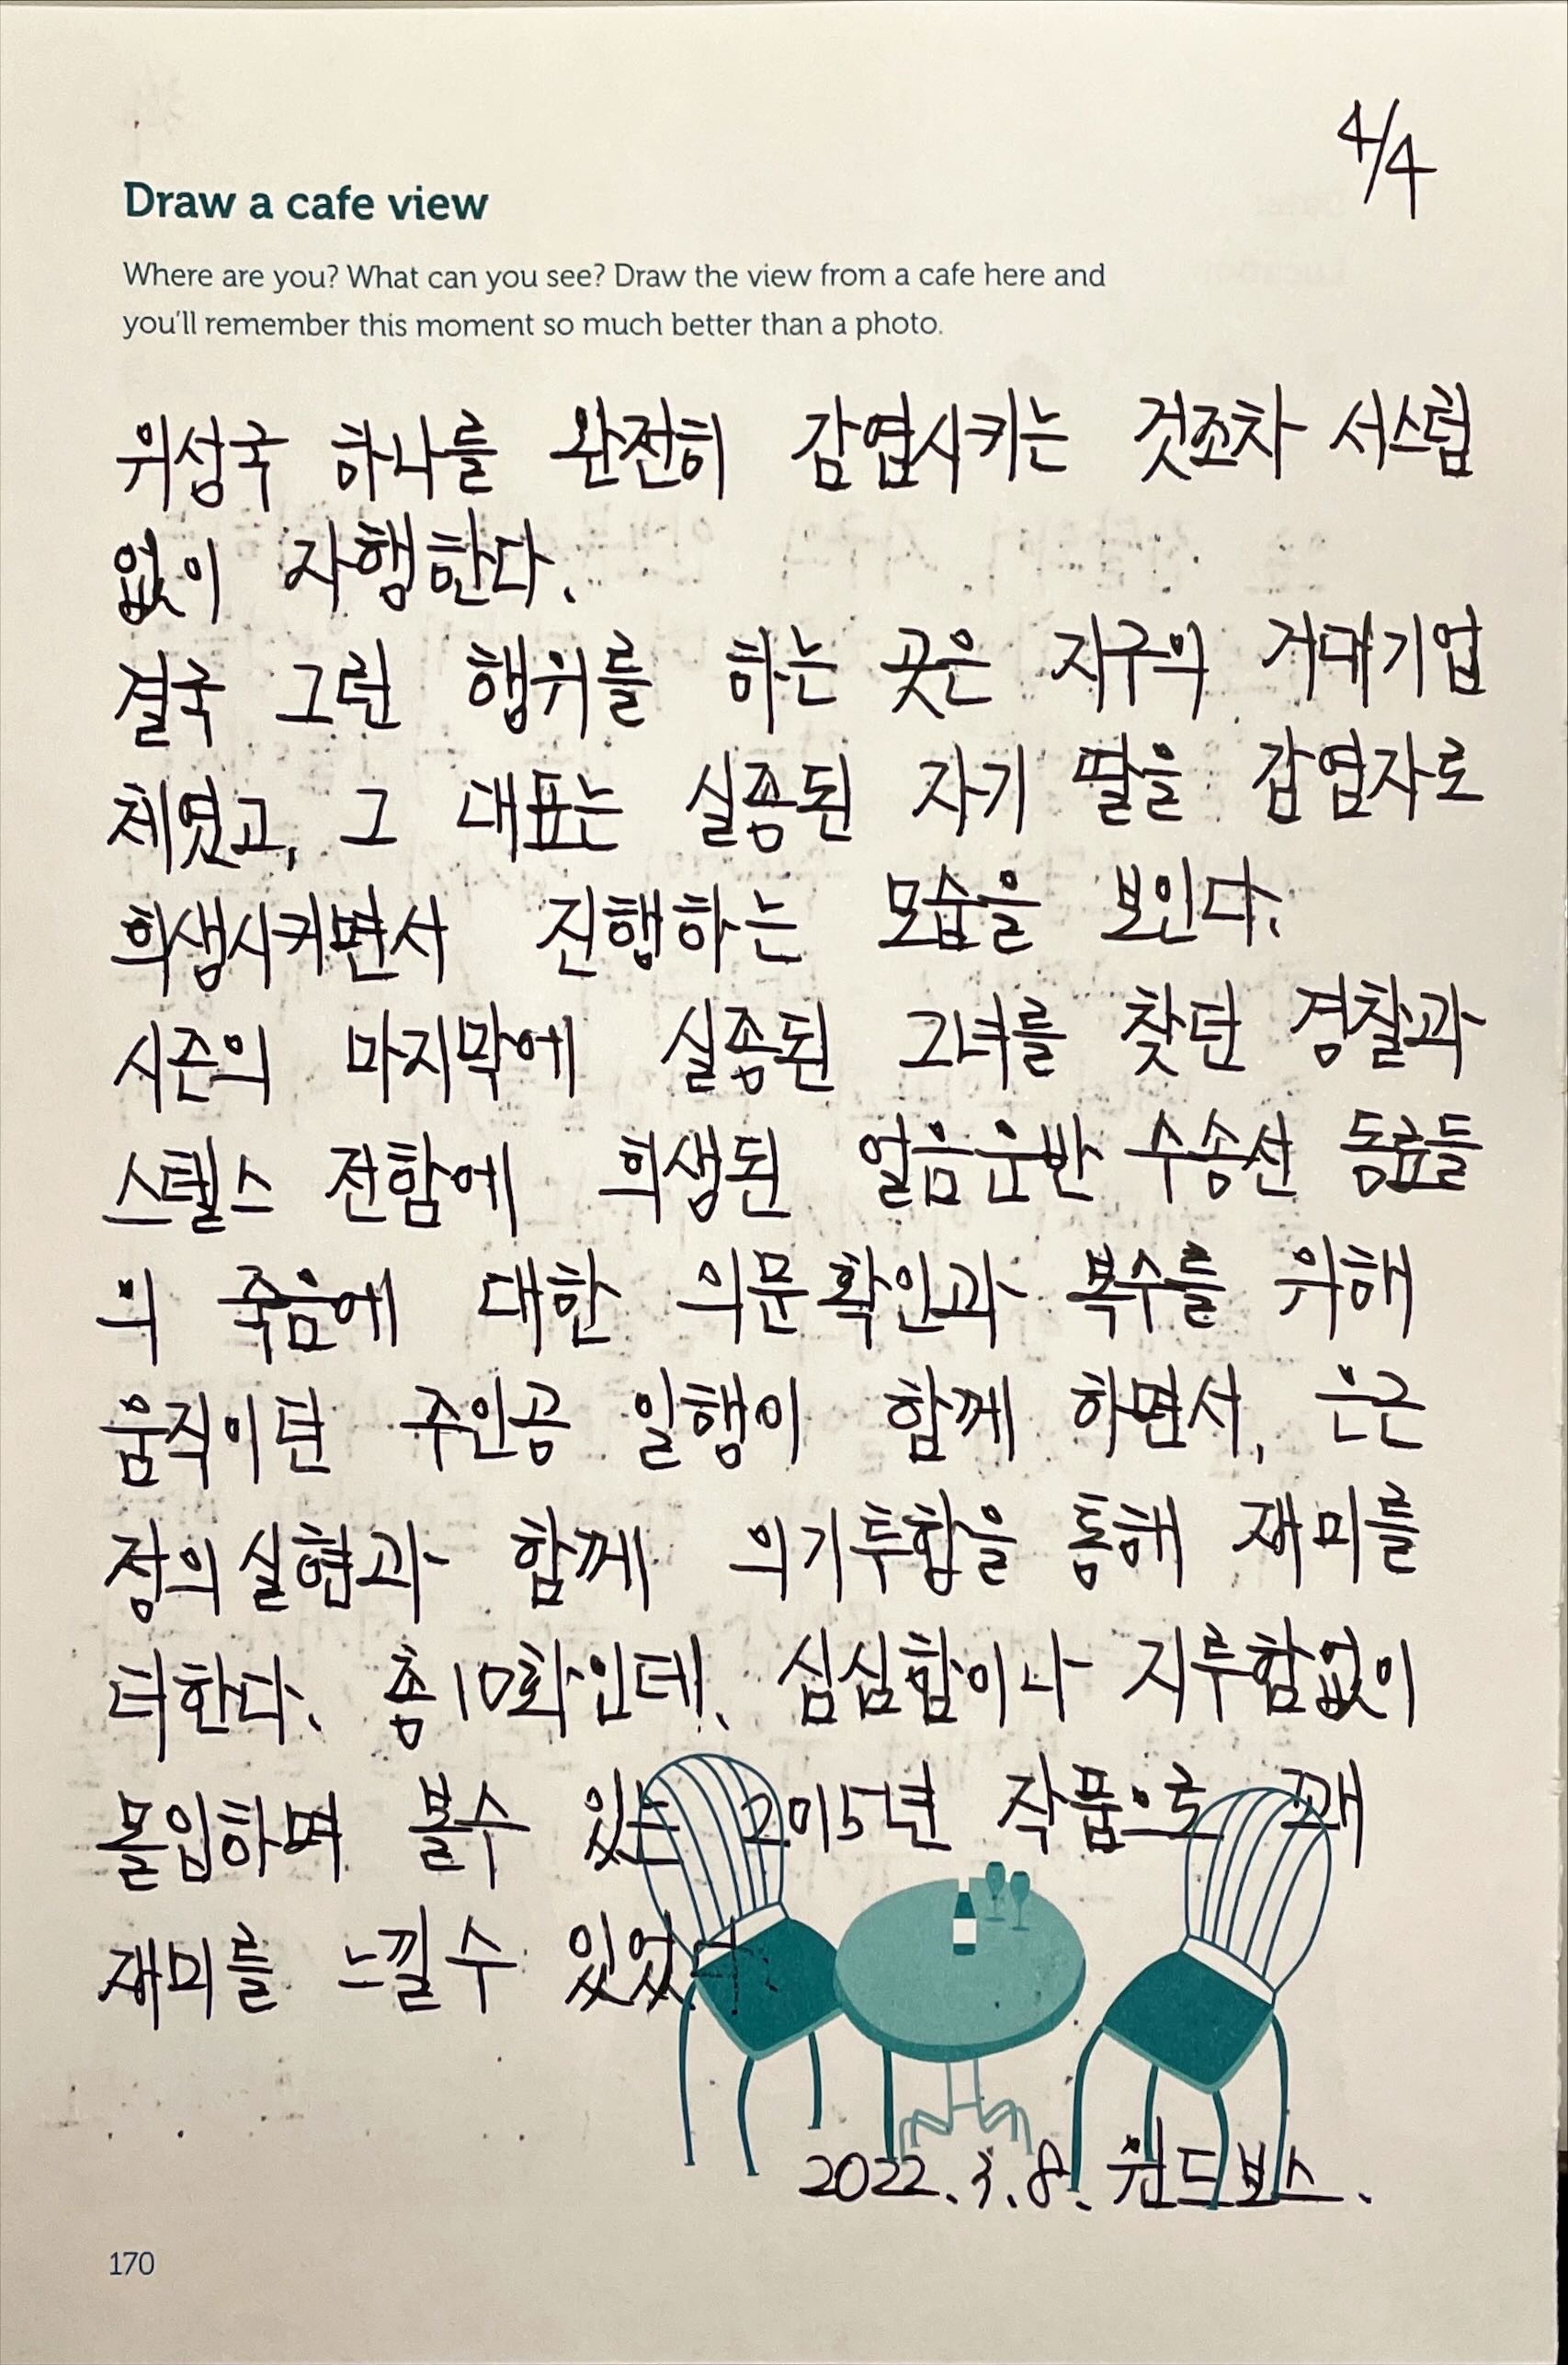 4/4
Draw a cafe view
Where are you? What can you see? Draw the view from a cafe here and
you'll remember this moment so much better than a photo.
위성국 하나를 완전히 감염시키는 것조차 서스럼
없이 자행한다.
결국 그런 행위를 하는 곳은 지구의 거대기업
체였고, 그 대표는 실종된 자기 딸을 감염자로
희생시키면서 진행하는 모습을 보인다.
시즌의 마지막에 실종된 그녀를 찾던 경찰과
스텔스 전함에 희생된 얼음운반 수송선 동료들
의 죽음에 대한 의문확인과 복수를 위해
움직이던 주인공 일행이 함께 하면서, 은근
정의실현과 함께 의기투합을 통해 재미를
더한다. 총10화인데, 심심함이나 지루함없이
몰입하며 볼수 있는 2015년 작품으로 꽤
재미를 느낄수 있었다.
2022.3.8. 윈드보스.
170